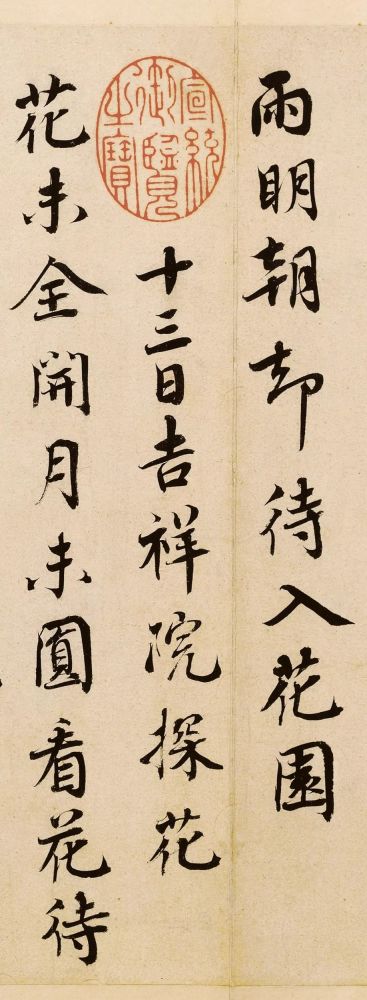 雨明朝却待入花園
十三日吉祥院探花
花未全開月未圓看花待
宣統御覽之寶